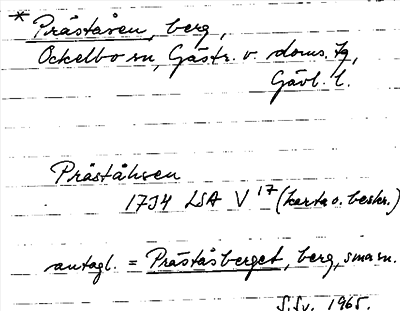 * Präståsen, berg,
Ockelbo sn, Gästr. v. doms. tg,
Gävl. l.
Präståhsen
1734 LSA V 17 (karta o. beskr.)
antagl. = Präståsberget, berg, smasn.
S.Sv. 1965.